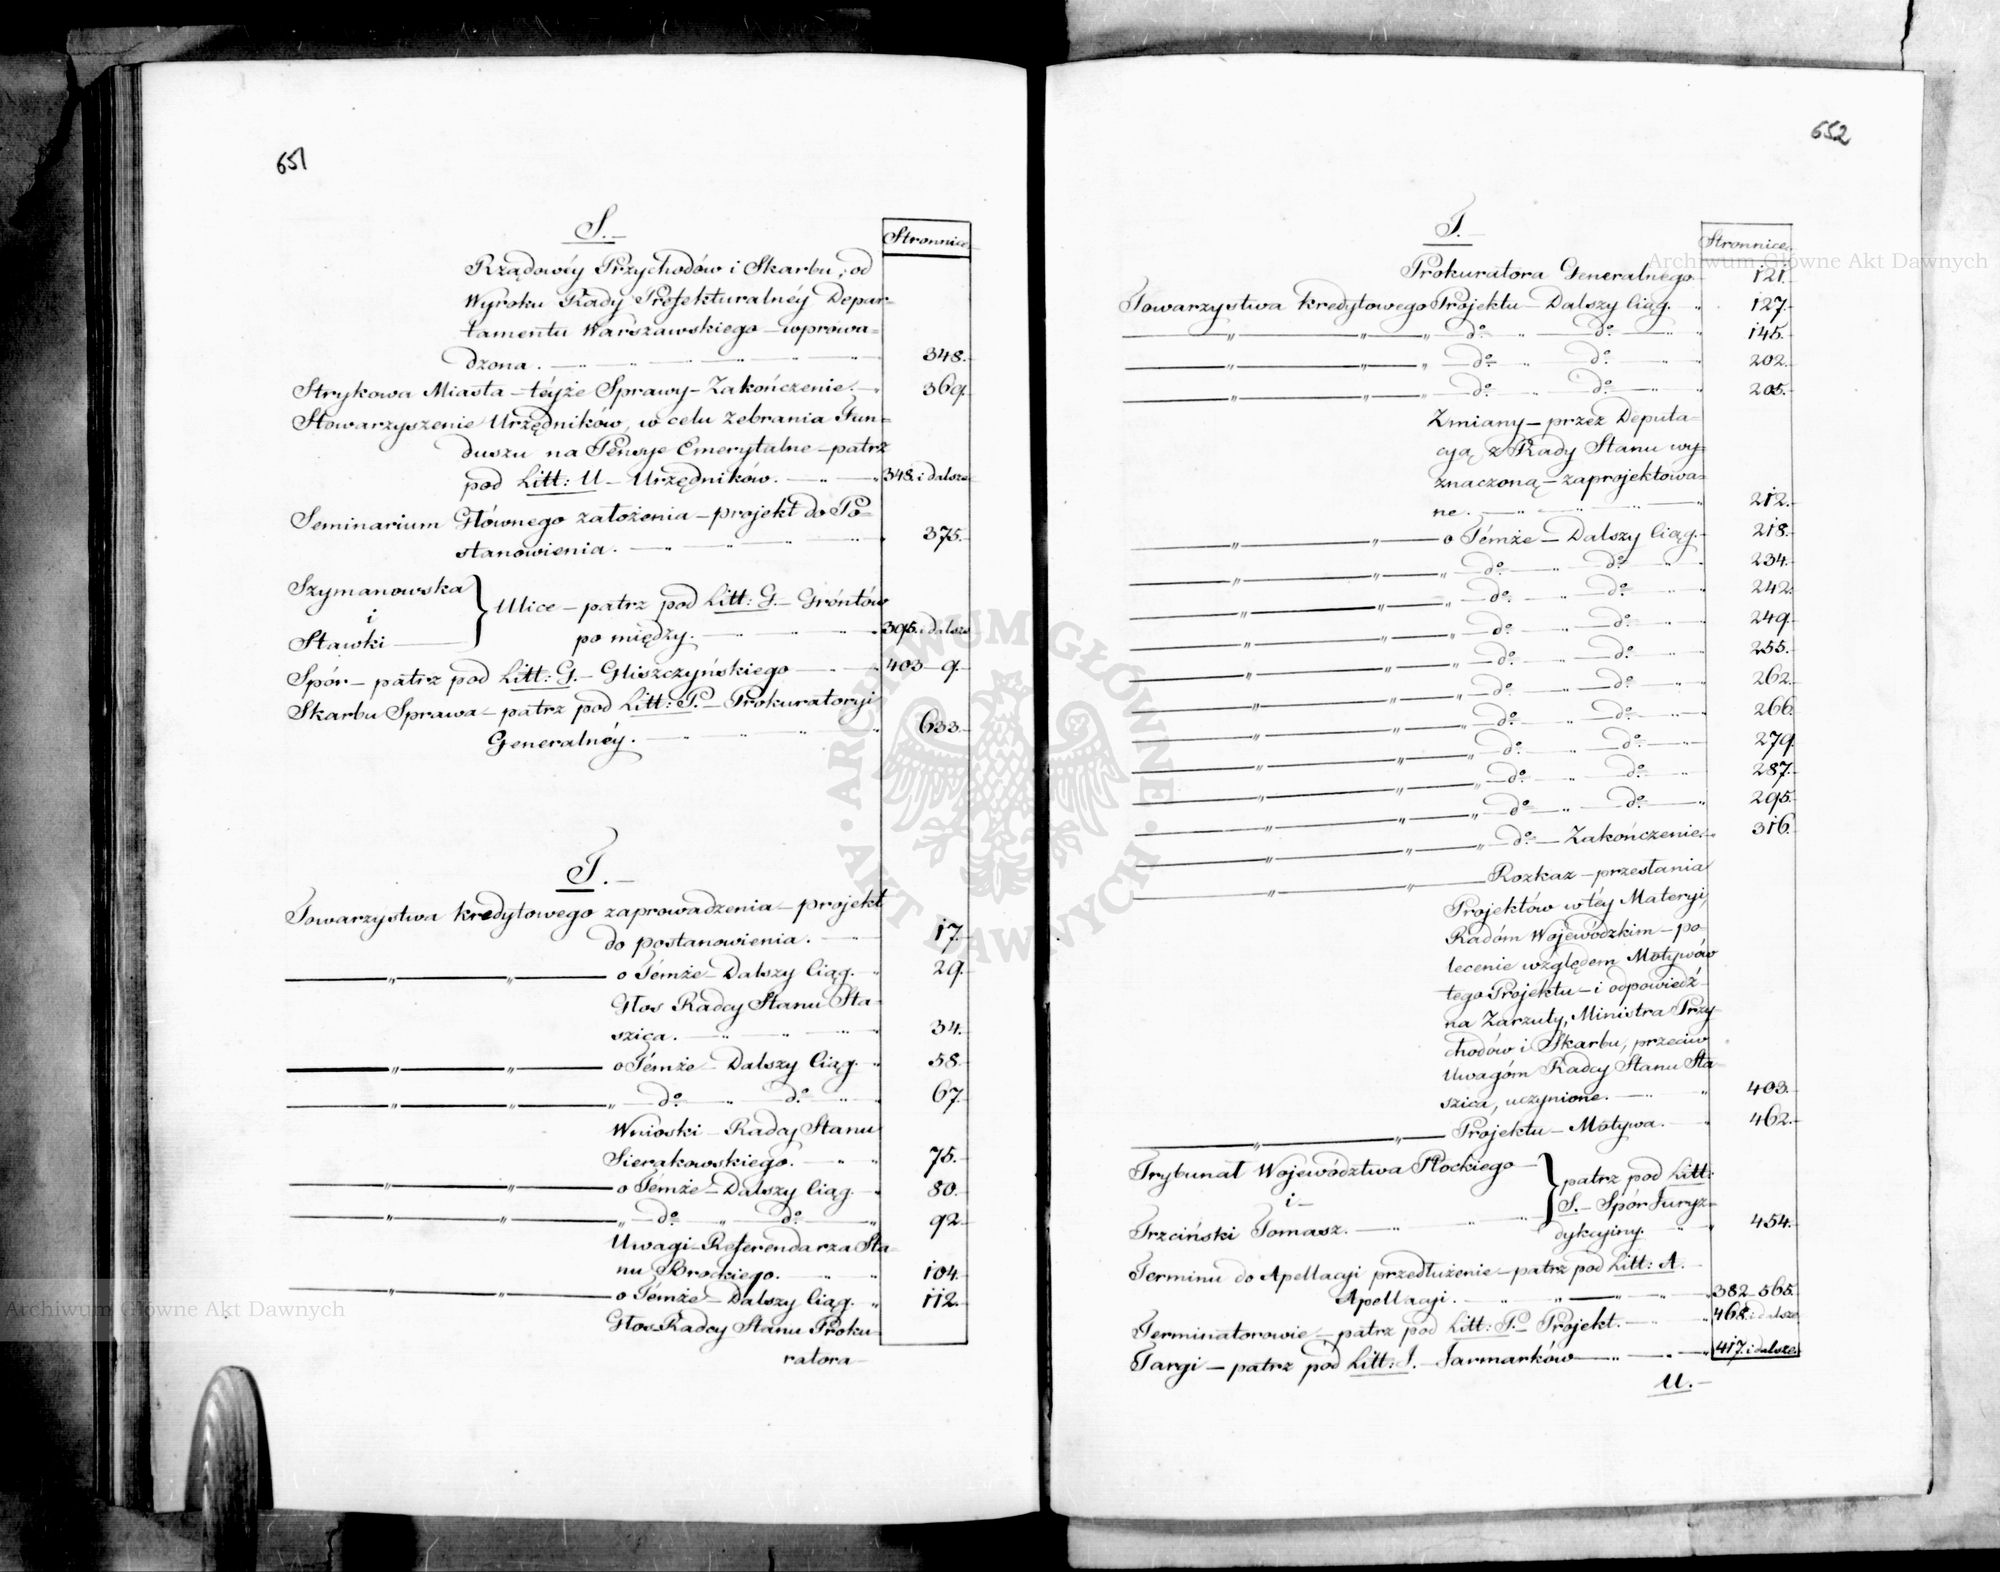 651
S.
Stronnice.
Rządowéy Przychodów i Skarbu, od
Wyroku Rady Prefekturalnéy Depar=
tamentu Warszawskiego – wprowa=
dzona. 348.
Strykowa Miasta – téyże Sprawy – Zakończenie. 369.
Stowarzyszenie Urzędników, w celu zebrania Fun=
duszu na Pensye Emerytalne – patrz
pod Litt: U – Urzędników. 348. i dalsze
Seminarium Głównego założenia – projekt do Po=
stanowienia. 375.
Szymanowska
i
Stawki
} Ulice – patrz pod Litt: G. – Gróntów
po między. 395. i dalsze
Spór – patrz pod Litt: G. – Gliszczyńskiego 403 – 9.
Skarbu Sprawa – patrz pod Litt: P. – Prokuratoryi
Generalnéy. 633.
T.
Towarzystwa kredytowego zaprowadzenia – projekt
do postanowienia. 17.
– " – " – o Témże – Dalszy Ciąg. 29.
Głos Radcy Stanu Sta=
szica. 34.
– " – " – o Témże – Dalszy Ciąg. 58.
– " – " – " – do – " – do 67.
Wnioski – Radcy Stanu
Sierakowskiego. 75.
– " – " – o Témże – Dalszy Ciąg. 80.
– " – " – " – do – " – do 92.
Uwagi – Referendarza Sta=
nu Brockiego. 104.
– " – " – o Témże – Dalszy Ciąg. 112.
Głos Radcy Stanu Proku=
ratora
652
T.
Stronnice.
Prokuratora Generalnego 121.
Towarzystwa kredytowego Projektu – Dalszy Ciąg. 127.
– " – " – do – " – do 145.
– " – " – do – " – do 202.
– " – " – do – " – do 205.
Zmiany – przez Deputa=
cyą z Rady Stanu wy=
znaczoną – zaprojektowa=
ne. 212.
– " – " – o Témże – Dalszy Ciąg. 218.
– " – " – " – do – " – do 234.
– " – " – " – do – " – do 242.
– " – " – " – do – " – do 249.
– " – " – " – do – " – do 255.
– " – " – " – do – " – do 262.
– " – " – " – do – " – do 266.
– " – " – " – do – " – do 279.
– " – " – " – do – " – do 287.
– " – " – " – do – " – do 295.
– " – " – " – do – Zakończenie. 316.
– " – " – Rozkaz – przesłania
Projektów w téy Materyi,
Radóm Wojewódzkim – po=
lecenie względem Motywów
tego Projektu – i odpowiedź
na Zarzuty, Ministra Przy
chodów i Skarbu, przeciw
Uwagóm Radcy Stanu Sta
szica, uczynione. 403.
– " – " – Projektu – Motywa. 462.
Trybunał Województwa Płockiego
i
Trzciński Tomasz.
} patrz pod Litt:
S. – Spór Juryz=
dykcyiny. 454.
Terminu do Apellacyi przedłużenie – patrz pod Litt: A.
Apellacyi. 382 – 565.
Terminatorowie – patrz pod Litt: P. Projekt. 468. i dalsze
Targi – patrz pod Litt: J. Jarmarków 417. i dalsze.
U.
Archiwum Główne Akt Dawnych
ARCHIWUM GŁÓWNE · AKT DAWNYCH ·
Archiwum Główne Akt Dawnych